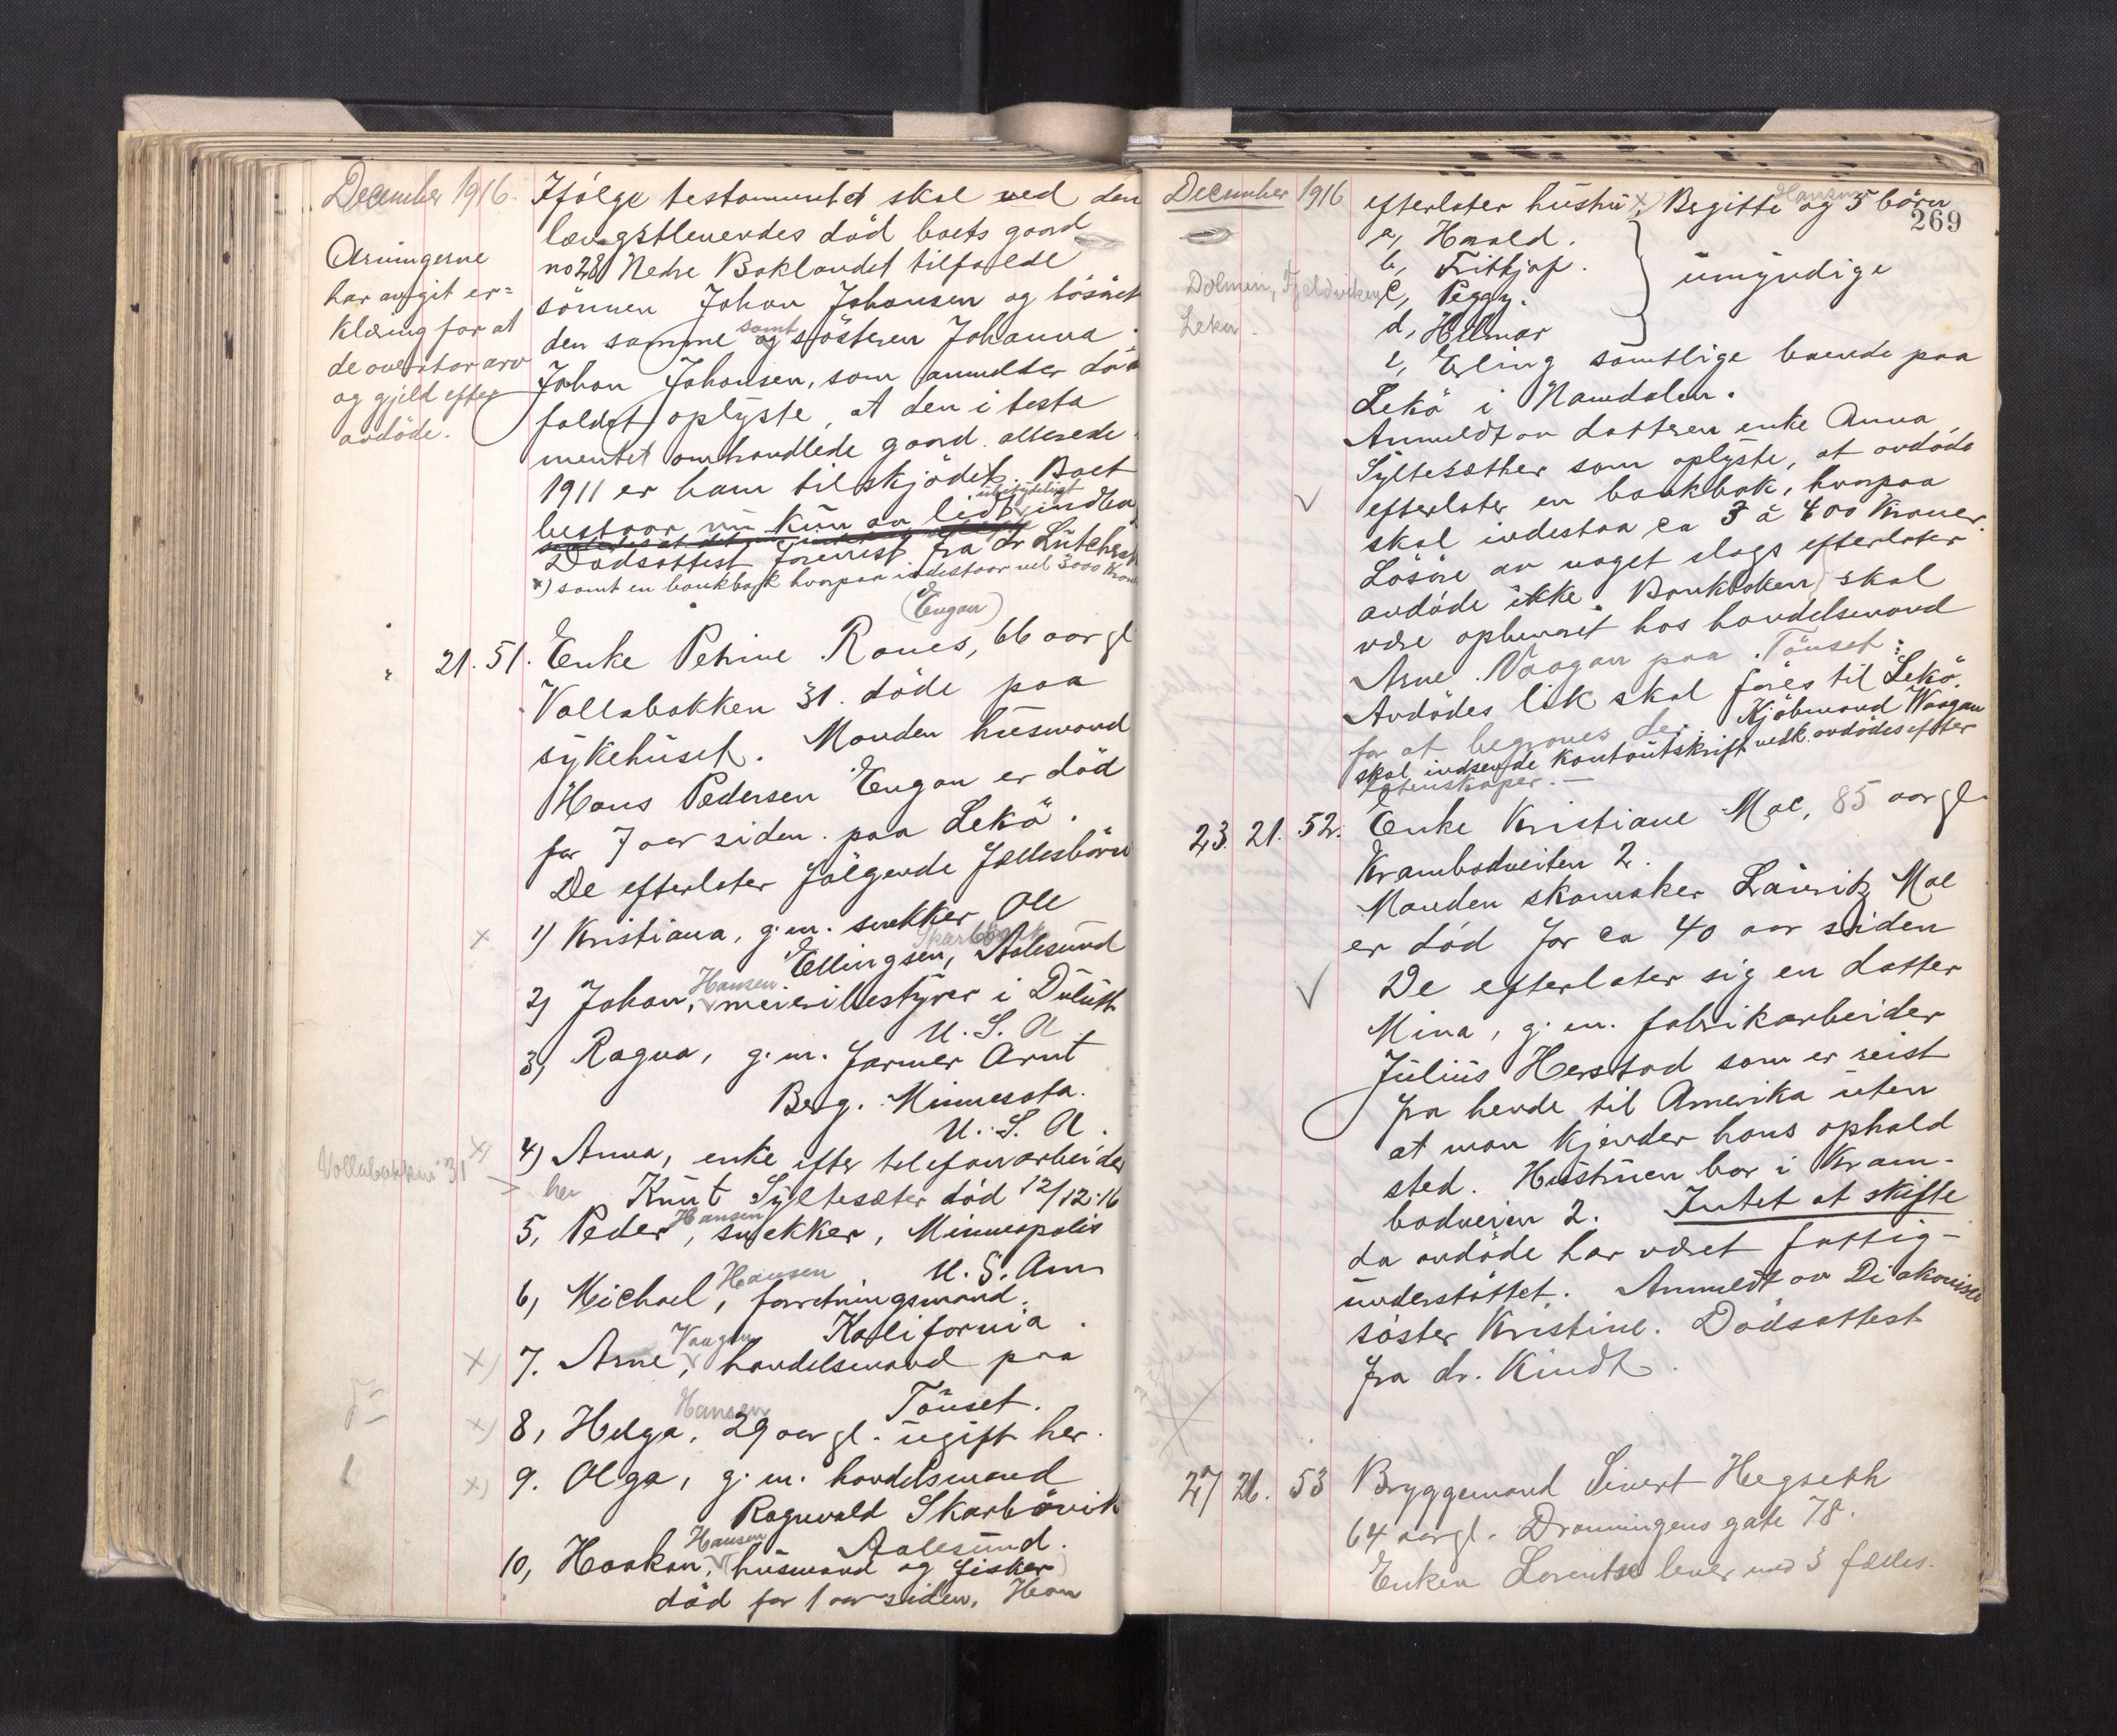 December 1916.
Arvingerne
har avgit er=
klæring for at
de overtar arv
og gjeld efter
avdöde.
Ifölge testamentet skal ved den
længstlevendes död boets gaard
no 28 Nedre Baklandet tilfalde
sönnen Johan Johansen og lösöret
den samme og samt söstren Johanna.
Johan Johansen, som anmelder döds
faldet oplyste, at den i testa
mentet omhandlede gaard allerede
1911 er ham tilskjödet. Boet
bestaar nu kun av lidt ubetydeligt indbo
Dödsattest forevist fra dr Lütcherath
x) samt en bankbok hvorpaa indestaar vel 3000 Kroner
(Engan)
21. 51. Enke Petrine Rones, 66 aar gl
Vollabakken 31. döde paa
sykehuset. Manden husmand
Hans Pedersen Engan er död
for 7 aar siden paa Lekö.
De efterlater fölgende fællesbörn
x 1) Kristiana, g. m. snekker Ole
Skarbövik
Ellingsen, Aalesund
2) Johan, Hansen meieribestyrer i Duluth
U. S. A
3, Ragna, g. m. farmer Arnt
Berg. Minnesota.
U. S. A.
Vollabakken 31
x) 4) Anna, enke efter telefonarbeider
her Knut Syltesæter död 12/12.16
5, Peder Hansen, snekker, Minneapolis
U. S. Am
6, Michael Hansen, forretningsmand.
Kalifornia.
x) 7. Arne Vaagan, handelsmand paa
Tönset.
x) 8, Helga Hansen, 29 aar gl. ugift her.
x) 9. Olga, g. m. handelsmand
Ragnvald Skarbövik
Aalesund.
10, Haakon Hansen, husmand og fisker
död for 1 aar siden. Han
December 1916
269
efterlater hustru x) Birgitte Hansen og 5 börn
a, Harald.
b, Frithjof.
c, Peggy.
d, Hilmar
umyndige
Dolmen, Fjeldviken
Leka.
e, Erling samtlige boende paa
Lekö i Namdalen.
Anmeldt av datteren enke Anna
Syltesæther som oplyste, at avdöde
efterlater en bankbok, hvorpaa
skal indestaa ca 3 à 400 Kroner.
Lösöre av noget slags efterlater
avdöde ikke. Bankboken skal
være opbevaret hos handelsmand
Arne Vaagan paa Tönset.
Avdödes lik skal föres til Lekö
for at begraves der. Kjöbmand Waagan
skal indsende kontoutskrift vedk. avdödes efter
latenskaper. —
23. 21. 52. Enke Kristiane Moe, 85 aar gl.
Krambodveiten 2.
Manden skomaker Lauritz Moe
er död for ca 40 aar siden
De efterlater sig en datter
Mina, g. m. fabrikarbeider
Julius Herstad som er reist
fra hende til Amerika uten
at man kjender hans ophold
sted. Hustruen bor i Kram-
bodveien 2. Intet at skifte
da avdöde har været fattig-
understöttet. Anmeldt av Diakonisse
söster Kristine. Dödsattest
fra dr. Kindt.
27 26. 53 Bryggemand Sivert Hegseth
64 aar gl. Dronningens gate 78.
Enken Lorentse lever med 3 fælles.